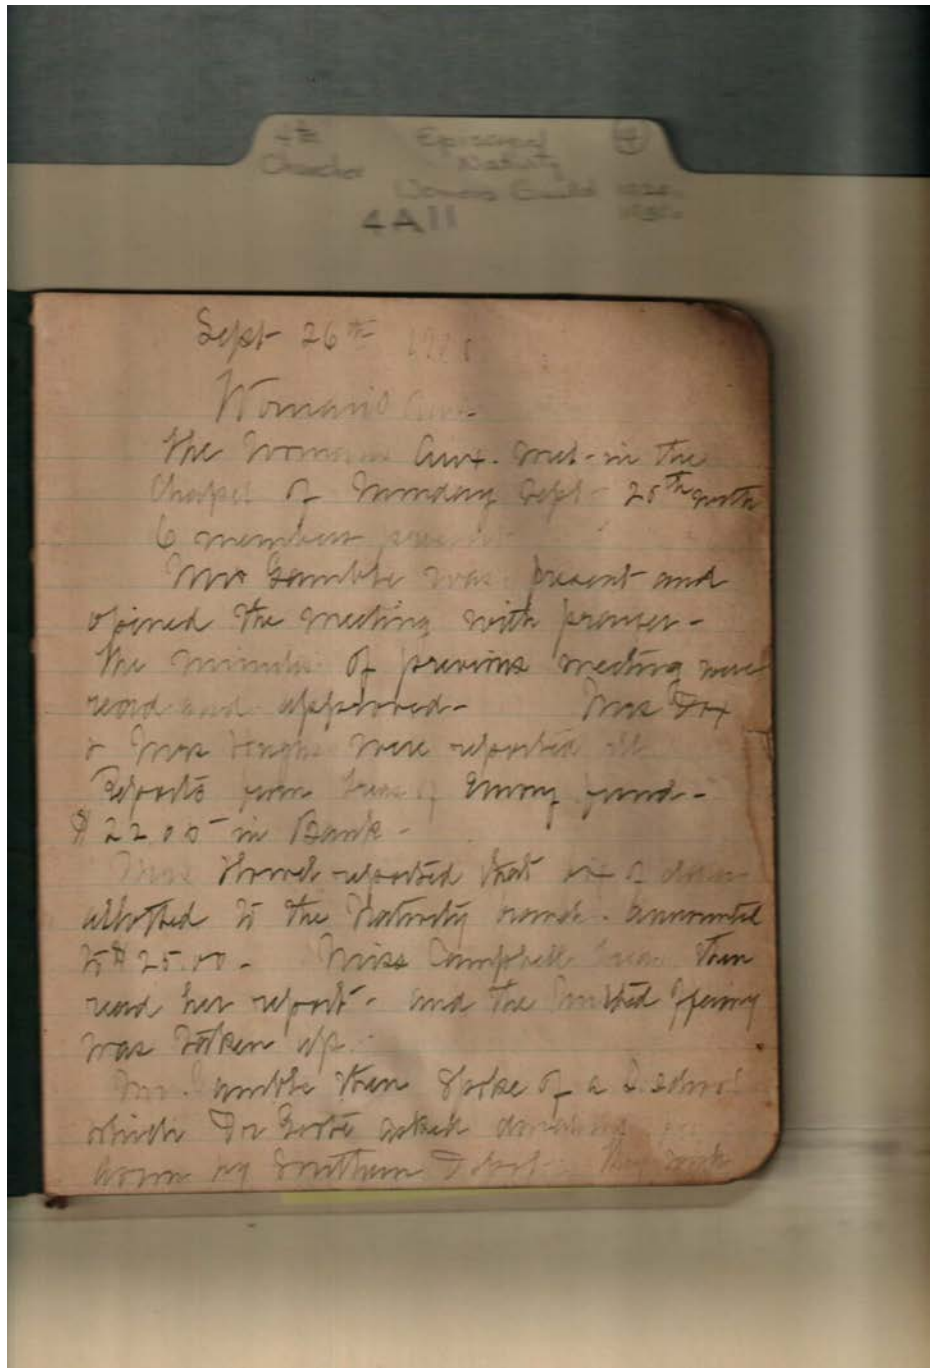 4th Episcopal 4
Church Nativity
Womens Guild
4A11
Sept 26th
Woman's Aux.
The Womans Aux. met in the
Chapel of Monday Sept 25th with
6 members present
Mr Gamble was present and
opened the meeting with prayer -
The minutes of previous meeting were
read and approved - Mrs Fox
& Mrs were reported ill
Reports from Treas of Emory fund -
$22.00 in Bank -
Mrs reported that
allotted to the Nativity branch amounted
to $25.00 - Miss Campbell Treas then
read her report - and the United Offering
was taken up.
Mr. Gamble then spoke of a S. School
which Dr asked
by Southern They